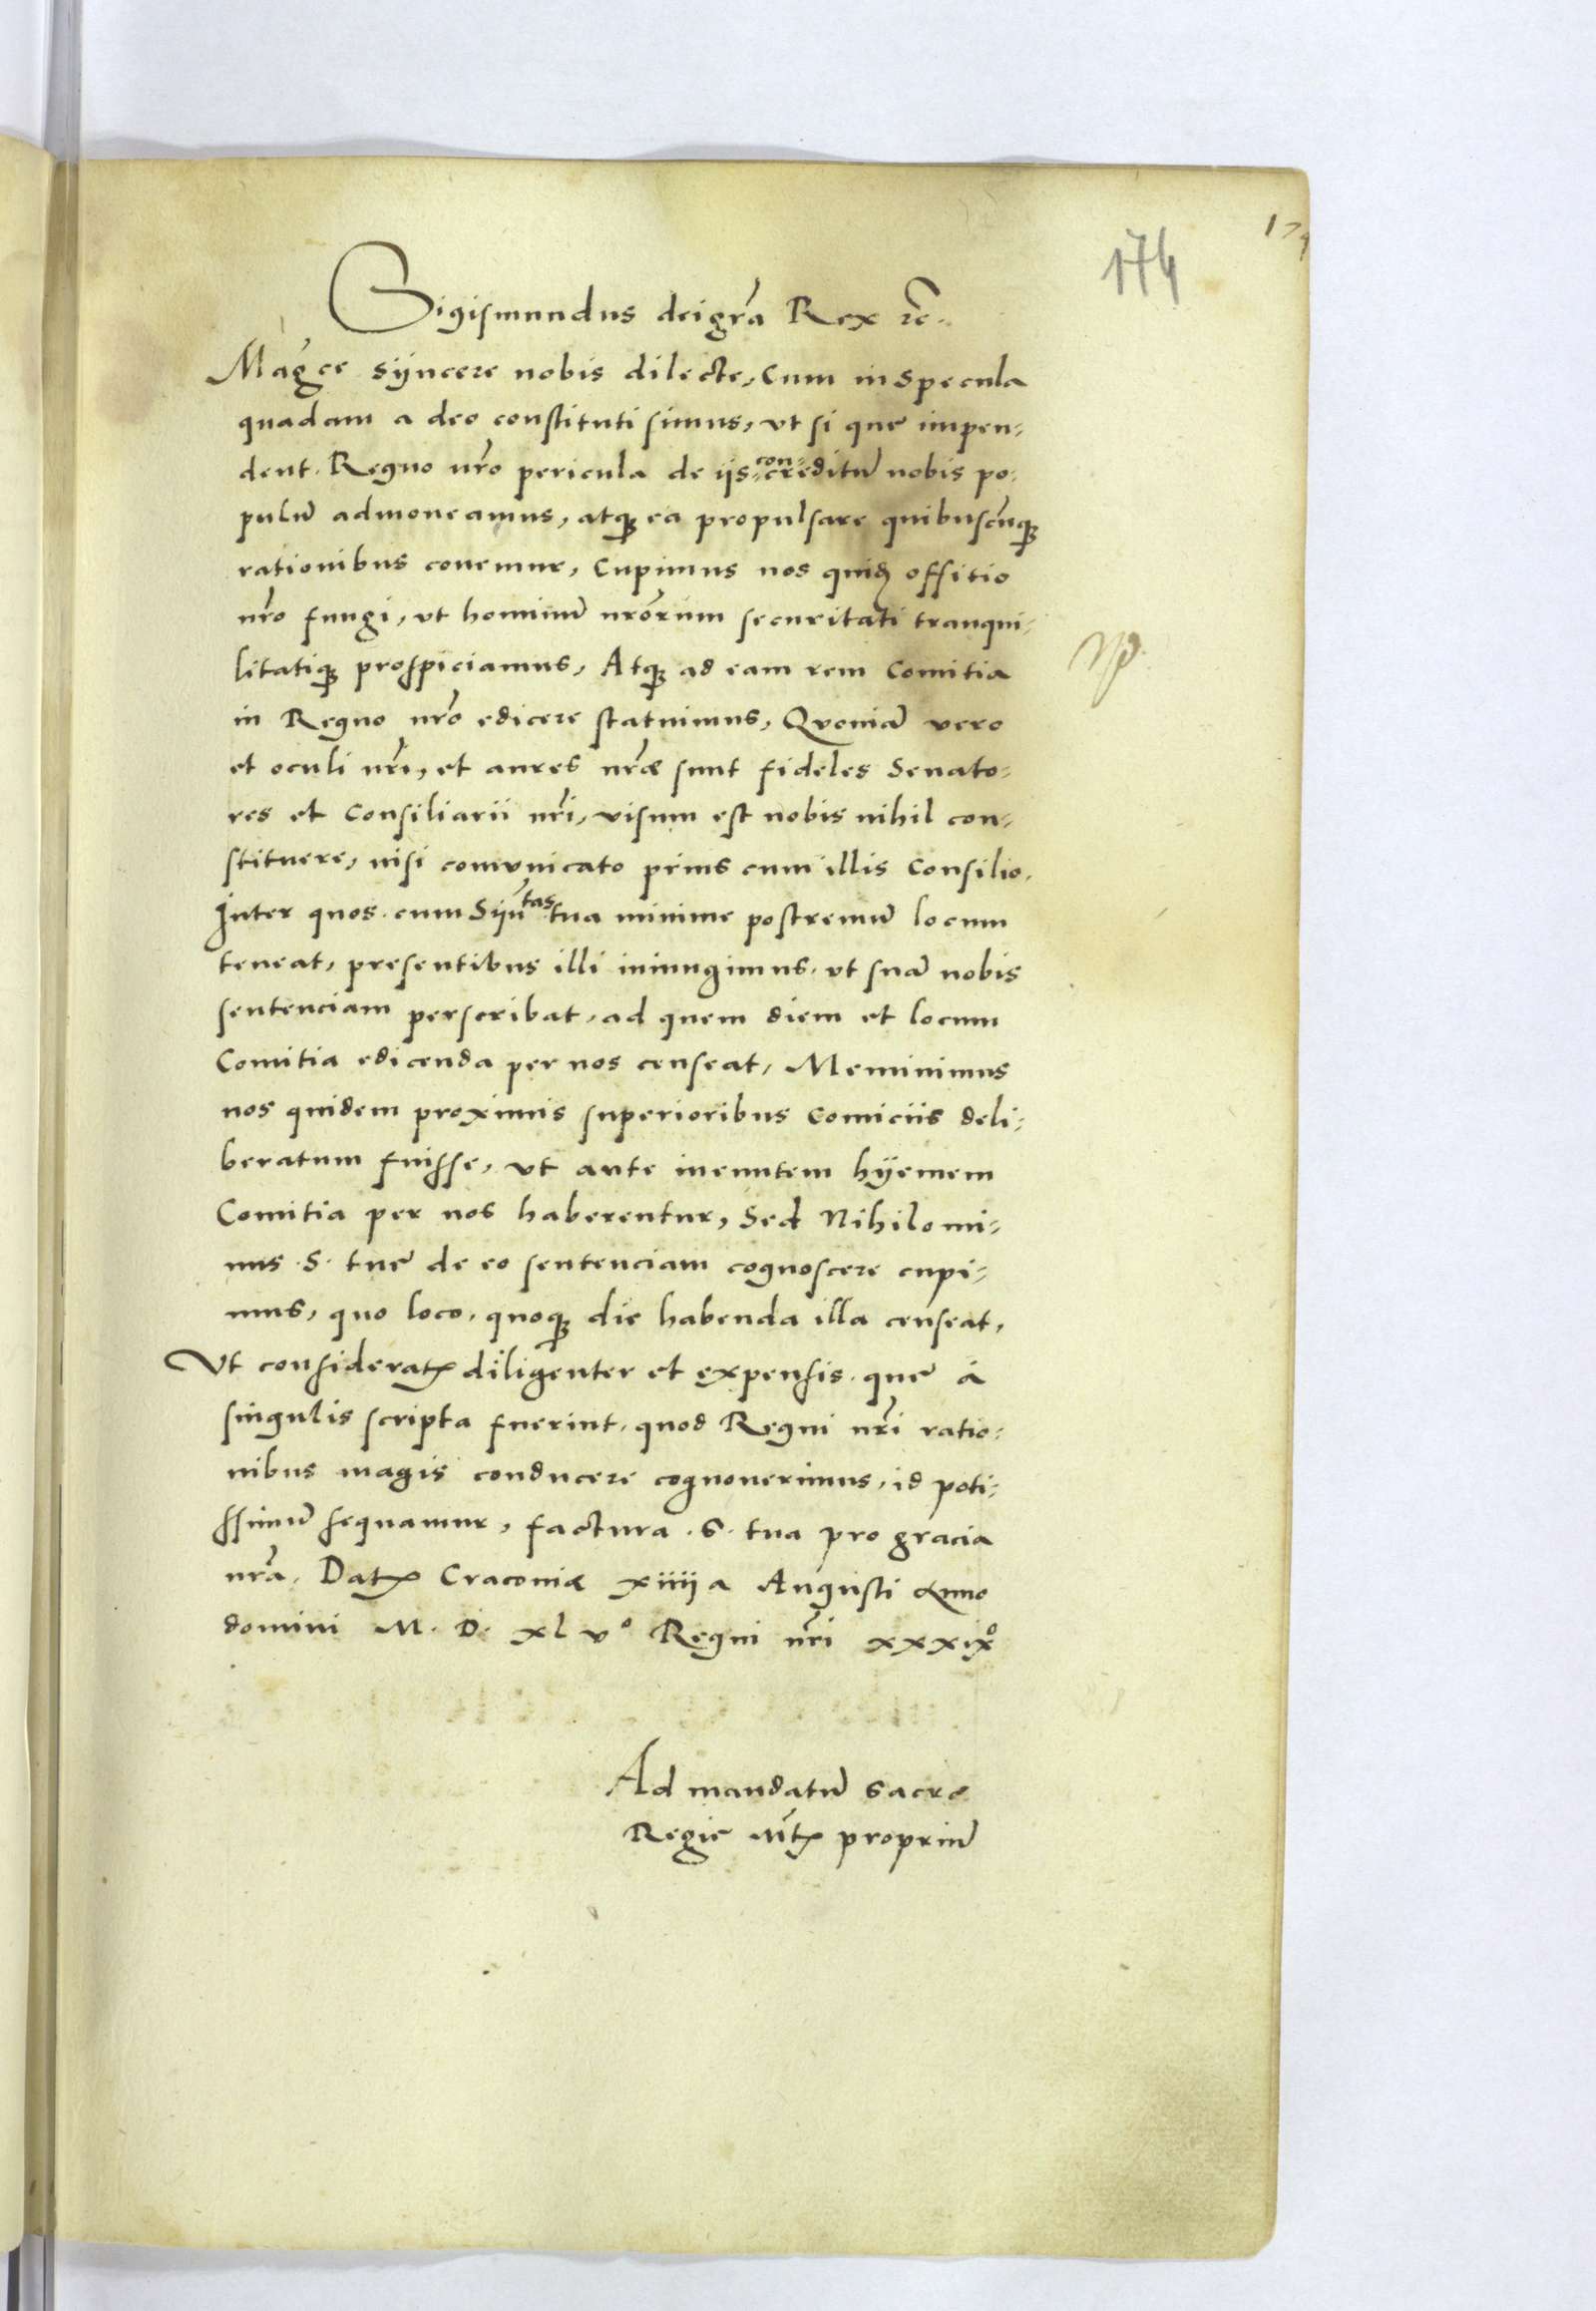 174
174
Sigismundus dei gr̃a Rex rc̃.
Mag̃ce sÿncere nobis dilecte, Cum in specula
quadam a deo constituti simus, vt si que impen=
dent Regno nr̃o pericula de iis con=creditũ nobis po=
pulũ admoneamus, atq̨ ea propulsare quibuscũq̨
rationibus conemur, Cupimus nos quid̃ offitio
nr̃o fungi, vt hominũ nr̃orum securitati tranqui=
litatiq̨ prospiciamus, Atq̨ ad eam rem Comitia
in Regno nr̃o edicere statuimus, Quoniã vero
et oculi nr̃i, et aures nr̃æ sunt fideles Senato=
res et Consiliarii nr̃i, visum est nobis nihil con=
stituere, nisi comunicato prius cum illis Consilio.
Inter quos cum Sÿñtas tua minime postremũ locum
teneat, presentibus illi iniungimus, vt suã nobis
sentenciam perscribat, ad quem diem et locum
Comitia edicenda per nos censeat, Meminimus
nos quidem proximis superioribus Comiciis deli=
beratum fuisse, vt ante ineuntem hÿemem
Comitia per nos haberentur, Sed Nihilomi=
nus S. tue de eo sentenciam cognoscere cupi=
mus, quo loco, quoq̨ die habenda illa censeat,
Vt consideratꝭ diligenter et expensis que à
singulis scripta fuerint, quod Regni nr̃i ratio=
nibus magis conducere cognouerimus, id poti=
ssimũ sequamur, factura S. tua pro gracia
nr̃a. Datꝭ Craconiæ xiiii a Augusti Anno
domini M. D. xl vº Regni nr̃i xxxixº
Ad mandatũ Sacre
Regie Mt̃ꝭ propriũ